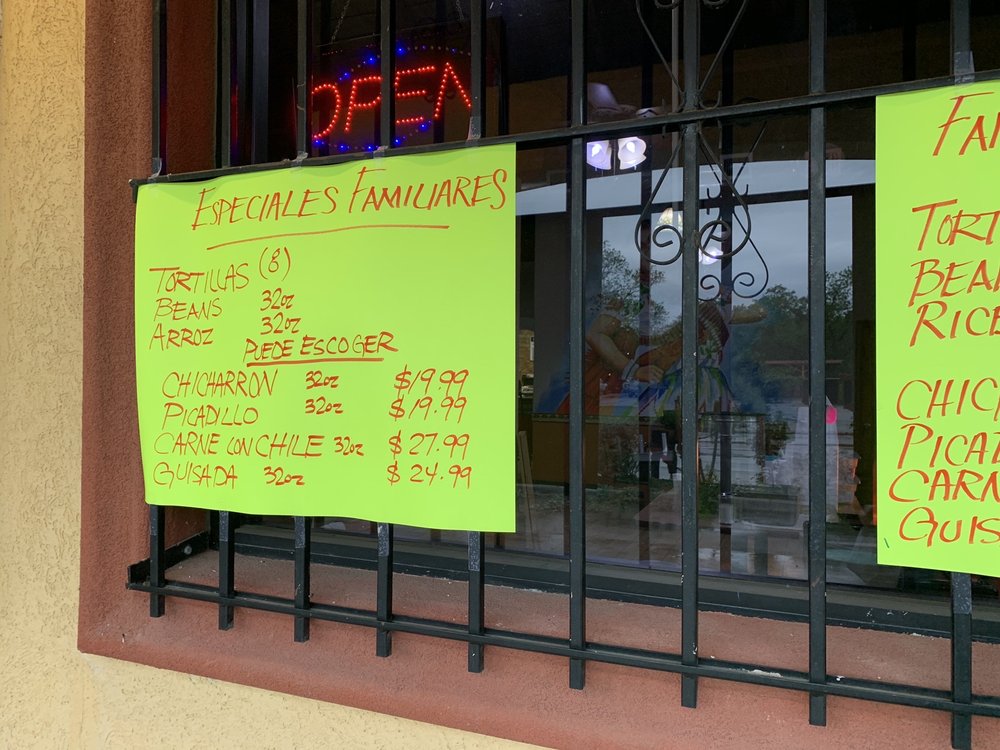 OPEN
ESPECIALES FAMILIARES
TORTILLAS (8)
BEANS 32oz
ARROZ 32oz
PUEDE ESCOGER
CHICHARRON 32oz $19.99
PICADILLO 32oz $19.99
CARNE CON CHILE 32oz $27.99
GUISADA 32oz $24.99
FA
TORT
BEA
RICE
CHIC
PICA
CARN
GUIS